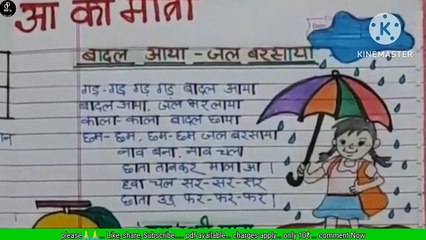 आ की मात्रा
बादल आया - जल बरसाया
गड़-गड़ गड़ गड़ बादल आया
बादल आया, जल भर लाया
काला-काला बादल छाया
छम-छम, छम-छम जल बरसाया
नाव बना, नाव चला
छाता तानकर माला आ।
हवा चल सर-सर-सर
छाता उड़ फर-फर-फर।
KINEMASTER
please🙏🙏.. Like ,share ,Subscribe..... pdf available.. charges apply.. only 10₹... comment Now